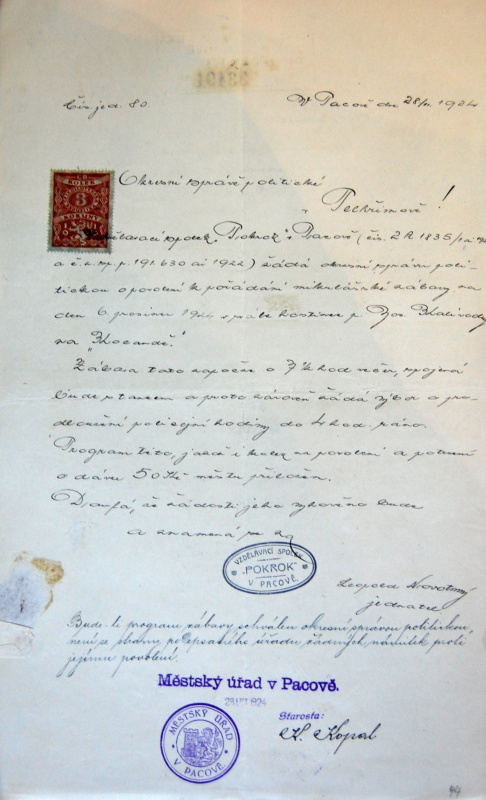 Čís. jed. 80.
V Pacově dne 28/XI. 1924
KOLEK
3
KORUNY
Okresní správě politické
v Pelhřimově!
Vzdělávací spolek „Pokrok“ v Pacově (čís. 2 R 1835/1 ai
a č. z. s. p. 191.630 ai 1922) žádá okresní správu poli-
tickou o povolení k pořádání mikulášské zábavy na
den 6. prosince 1924 v sále hostince p. Jos.
na
Zábava tato započne o 7½ hod večer, spojená
bude s tancem a proto zároveň žádá výbor o pro-
dloužení policejní hodiny do 4 hod. ráno.
Program této, jakož i kolek na povolení a potvrzení
o dávce 50 Kč městu přiložen.
Doufá, že žádosti jeho vyhověno bude
a znamená se za
VZDĚLÁVACÍ SPOLEK
„POKROK“
V PACOVĚ.
Leopold Novotný
jednatel
Bude-li program zábavy schválen okresní správou politickou,
není se strany podepsaného úřadu žádných námitek proti
jejímu povolení.
Městský úřad v Pacově.
1924
MĚSTSKÝ ÚŘAD
V PACOVĚ.
Starosta:
K. Kopal
44